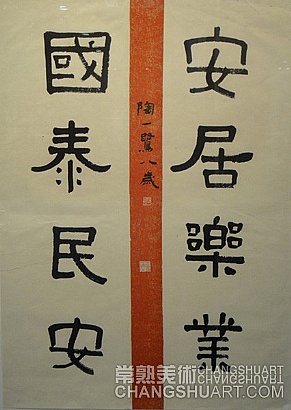 安居樂業
國泰民安
陶一鷺八歲
常熟美術 CHANGSHUART
CHANGSHUART.COM